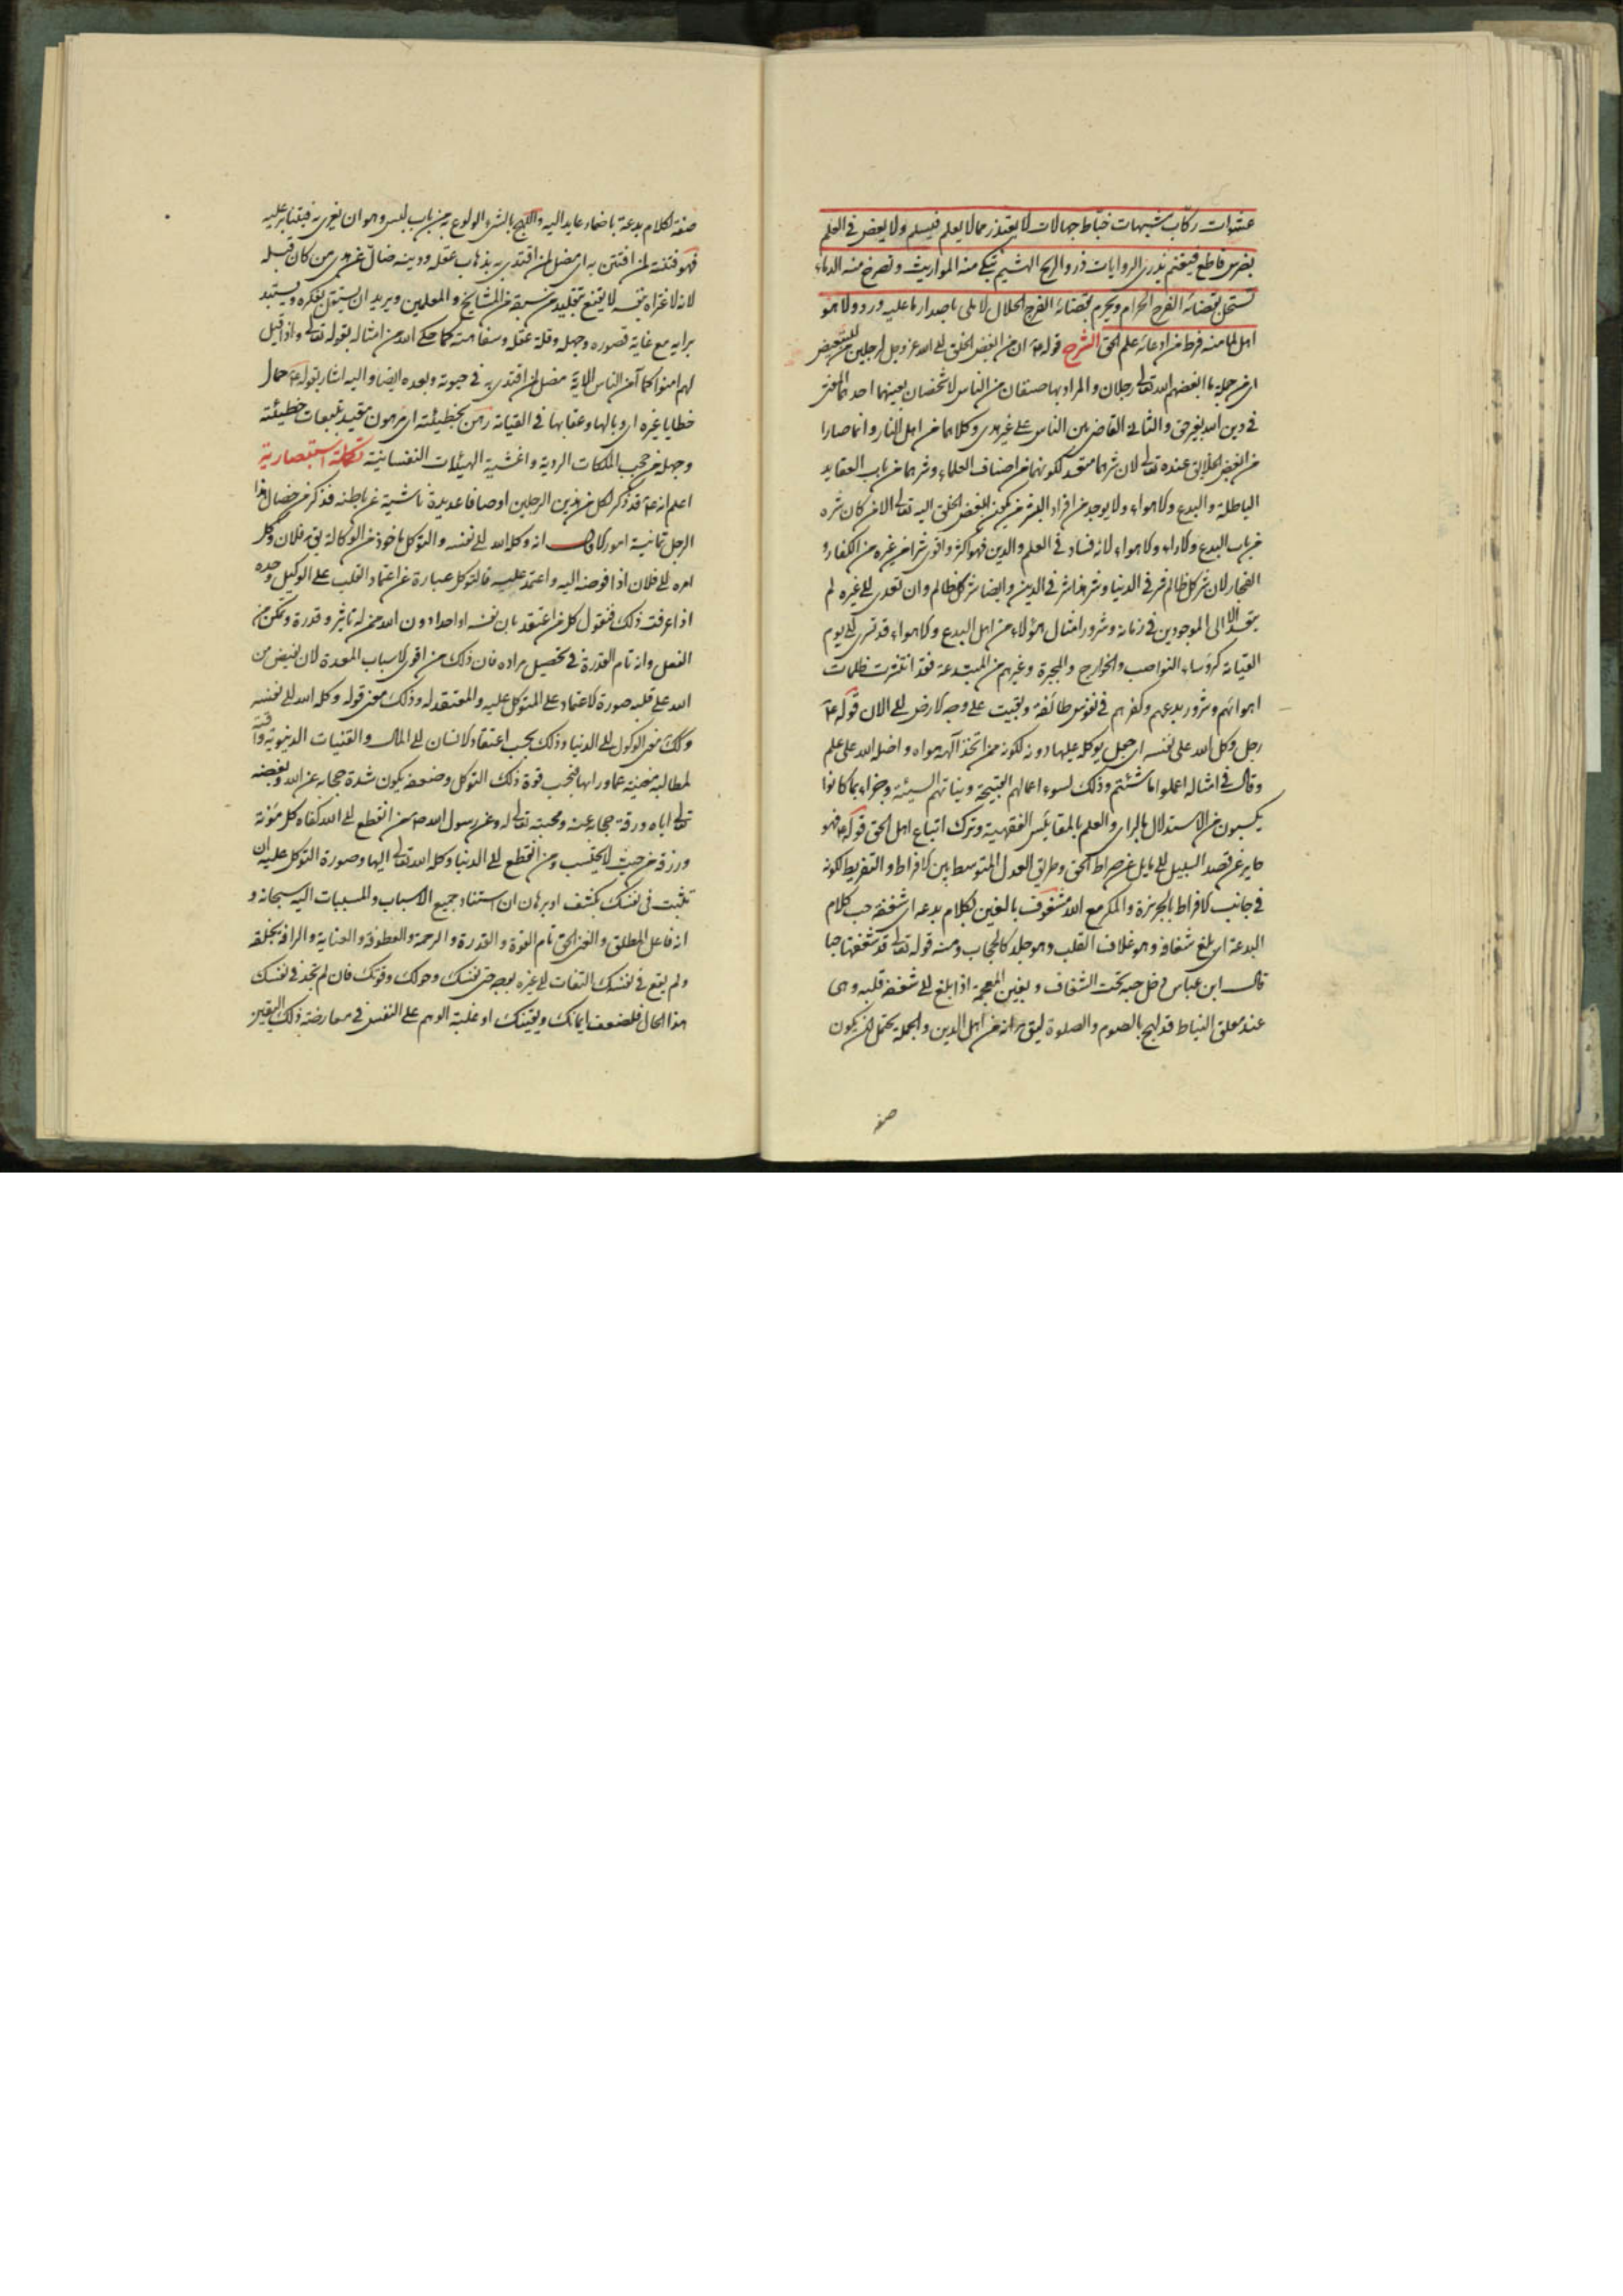 عشوات ركاب شبهات خباط جهالات لا يعتذر مما لا يعلم فيسلم ولا يعض في العلم
بضرس قاطع فيغنم يذرى الروايات ذرو الريح الهشيم تبكى منه المواريث وتصرخ منه الدماء
تستحل بقضائه الفرج الحرام ويحرم بقضائه الفرج الحلال لا ملى باصدار ما عليه ورد ولا هو
اهل لما منه فرط من ادعائه علم الحق الشرح قوله ع ان من ابغض الخلق الى الله عز وجل لرجلين
اى من جملة ما ابغضهم الله تعالى رجلان والمراد بهما صنفان من الناس لا شخصان بعينهما احدهما المفتى
في دين الله بغير حق والثانى القاضى بين الناس على غير هدى وكلاهما من اهل النار وانما صارا
من ابغض الخلايق عنده تعالى لان شرهما متعد لكونهما من اصناف العلماء وشرهما من باب العقايد
الباطلة والبدع والاهواء ولا يوجد من افراد البشر من يكون ابغض الخلق اليه تعالى الا من كان شره
من باب البدع والاراء والاهواء لانه فساد في العلم والدين فهو اكثر واقوى شرا من غيره من الكفار و
الفجار لان شر كل ظالم شر في الدنيا وشر هذا شر في الدين وايضا شر كل ظالم وان تعدى الى غيره لم
يتعد الا الى الموجودين في زمانه وشرور امثال هؤلاء من اهل البدع والاهواء قد تسرى الى يوم
القيامة كرؤساء النواصب والخوارج والمجبرة وغيرهم من المبتدعة فقد انتشرت ظلمات
اهوائهم وشرور بدعهم وكفرهم في نفوس طائفة وبقيت على وجه الارض الى الان قوله ع
رجل وكل الله على نفسه اى جعل يوكله عليها دونه لكونه ممن اتخذ آلهه هواه واضل الله على علم
وقال في امثاله اعملوا ما شئتم وذلك لسوء اعمالهم القبيحة ونياتهم السيئة وجزاء بما كانوا
يكسبون من الاستدلال بالراى والعلم بالمقائيس الفقهية وترك اتباع اهل الحق قوله ع فهو
جاير عن قصد السبيل اى مايل عن صراط الحق وطريق العدل المتوسط بين الافراط والتفريط لكونه
في جانب الافراط بالجربزة والمكر مع الله مشغوف بالغين لكلام بدعة اى شغفه حب كلام
البدعة اى بلغ شغافه وهو غلاف القلب وهو جلد كالحجاب ومنه قوله تعالى قد شغفها حبا
قال ابن عباس دخل حبه تحت الشغاف وبغين المعجمة اذا بلغ الى شغفة قلبه وهى
عند معلق النياط قد لهج بالصوم والصلوة ليق انه من اهل الدين والجملة يحتمل ان يكون
صفة
صفة لكلام بدعة باضمار عايد اليه واللهج بالشئ الولوع به من باب لبس وهو ان يغرى به فيثابر عليه
فهو فتنة لمن افتتن به اى مضل لمن اقتدى به يذهاب عقله ودينه ضال عن هدى من كان قبله
لانه لاغتراه بنفسه لا يقتنع بتقليد من سبقه من المشايخ والمعلمين ويريد ان يستقل بفكره ويستبد
برايه مع غاية قصوره وجهله وقلة عقله وسفاهته كما حكى الله من امثاله بقوله تعالى واذا قيل
لهم امنوا كما آمن الناس الاية مضل لمن اقتدى به في حيوته وبعده ايضا واليه اشار بقوله ع حمال
خطايا غيره اى وبالها وعقابها في القيامة رهن بخطيئته اى مرهون مقيد بتبعات خطيئته
وجهله من حجب الملكات الردية واغشية الهيئات النفسانية تكملة استبصارية
اعلم انه ع قد ذكر لكل من هذين الرجلين اوصافا عديدة ناشية عن باطنه فذكر من خصال هذا
الرجل ثمانية امور الاول انه وكله الله الى نفسه والتوكل ماخوذ من الوكالة يق فلان وكل
امره الى فلان اذا فوضه اليه واعتمد عليه فالتوكل عبارة عن اعتماد القلب على الوكيل وحده
اذا عرفت ذلك فنقول كل من اعتقد بان نفسه او احدا دون الله ممن له تاثير وقدرة وتمكن من
الفعل وانه تام القدرة في تحصيل مراده فان ذلك من اقوى الاسباب المعدة لان يفيض من
الله على قلبه صورة الاعتماد على المتوكل عليه والمعتقد له وذلك معنى قوله وكله الله الى نفسه
وكك معنى الوكول الى الدنيا وذلك بحسب اعتقاد الانسان الى المال والقنيات الدنيوية
لمطالبه مغنية عما ورائها فبحسب قوة ذلك التوكل وضعفه يكون شدة حجابه عن الله وبغضه
تعالى اياه ورقة حجابه عنه ومحبته تعالى له وعن رسول الله ص من انقطع الى الله كفاه كل مؤنة
ورزقه من حيث لا يحتسب ومن انقطع الى الدنيا وكله الله تعالى اليها وصورة التوكل عليه ان
تثبت في نفسك بكشف او برهان ان استناد جميع الاسباب والمسببات اليه سبحانه و
انه فاعل المطلق والغنى الحق تام القوة والقدرة والرحمة والعطوفة والعناية والرافة بخلقه
ولم يقع في نفسك التفات الى غيره بوجه حتى نفسك وحولك وقوتك فان لم تجد في نفسك
هذا الحال فلضعف ايمانك ويقينك او غلبة الوهم على النفس في معارضة ذلك اليقين